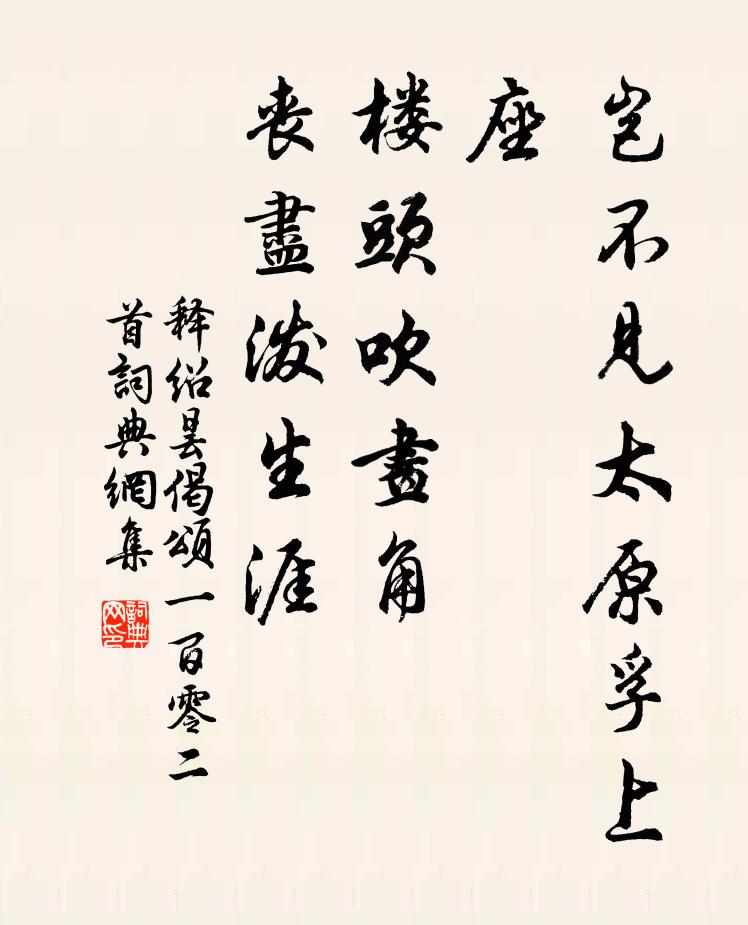 岂不见太原孚上
座
楼頭吹畫角
丧盡潑生涯
释绍昙偈頌一百零二
首詞典網集
詞典
网印